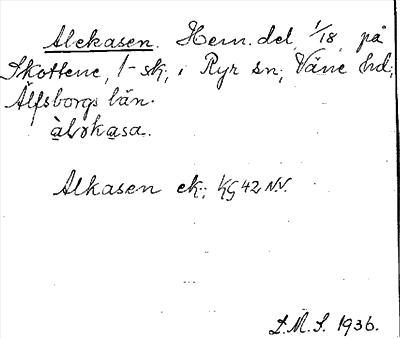 Alekasen. Hem. del, 1/18, på
Skottene, 1-sk., i Ryr sn, Väne hd,
Älfsborgs län.
àlɘkasa.
Alkasen ek; KG 42 N.V.
D.M.S. 1936.